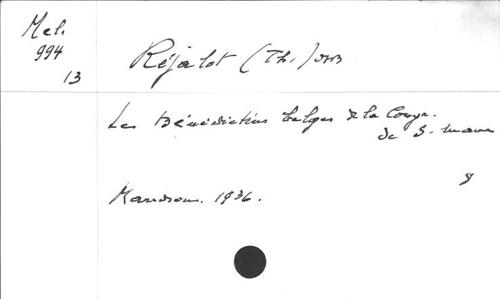 Mel.
994
13
Réjalot (Th.) OSB
Les Bénédictins belges de la Congr.
de S. Maur
Maredsous. 1936.
8